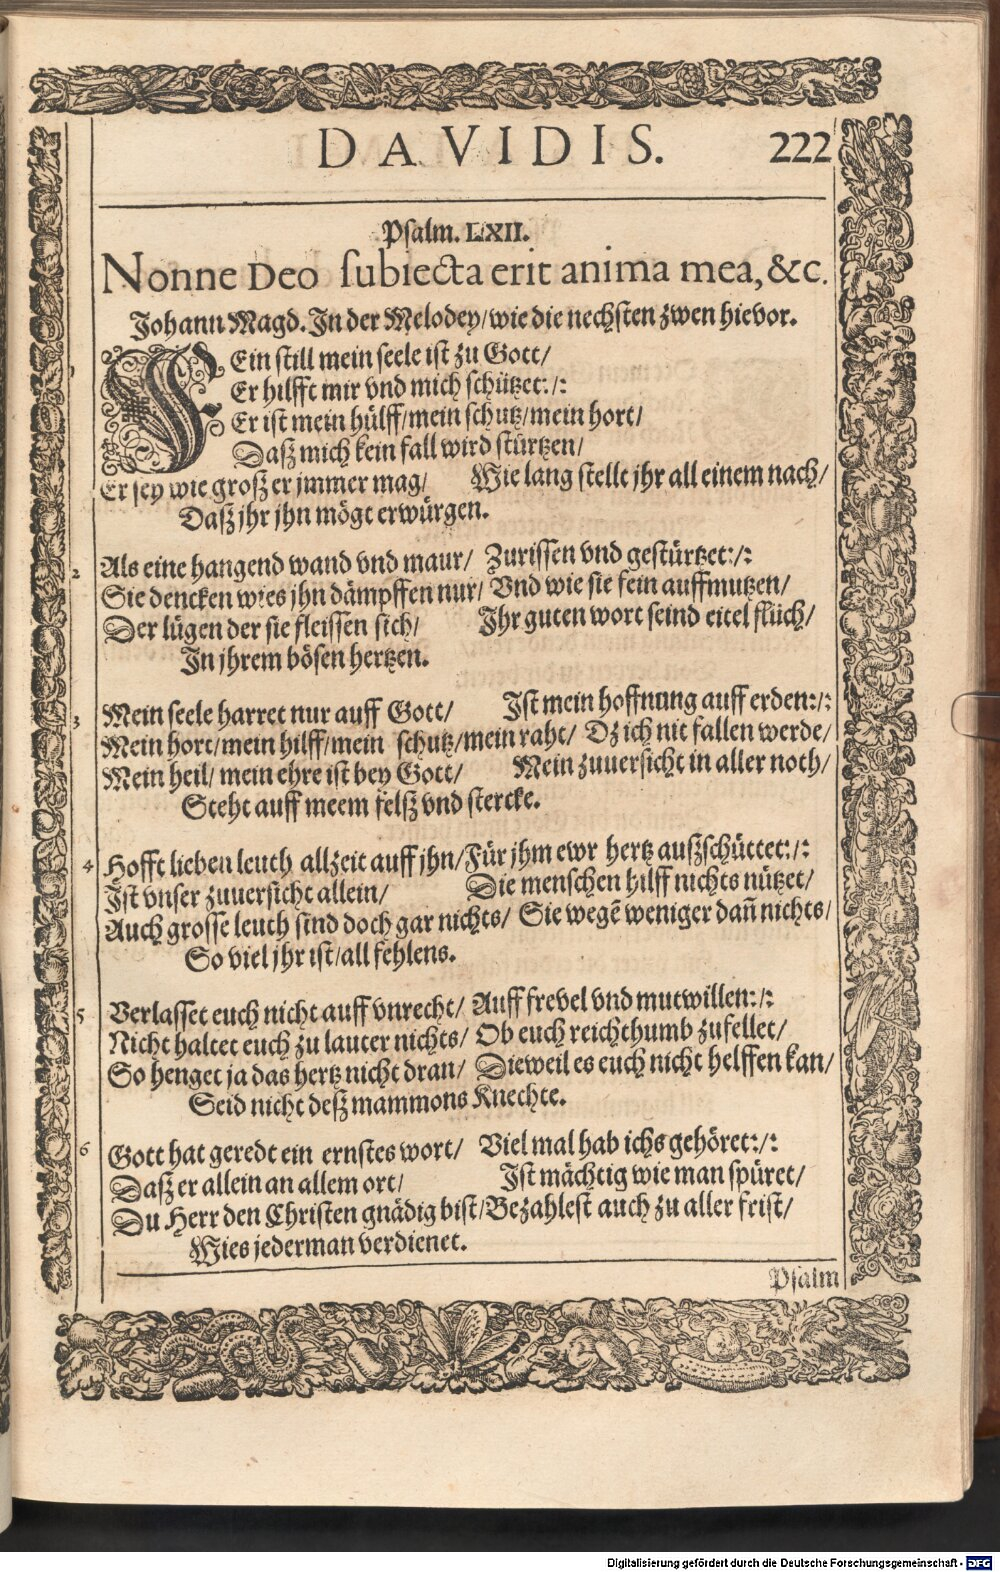 DAVIDIS. 222
Psalm. LXII.
Nonne Deo subiecta erit anima mea, &c.
Johann Magd. In der Melodey/wie die nechsten zwen hievor.
1 FEin still mein seele ist zu Gott/
Er hilfft mir vnd mich schützet:/:
Er ist mein hülff/mein schutz/mein hort/
Daß mich kein fall wird stürtzen/
Er sey wie groß er jmmer mag/ Wie lang stellt jhr all einem nach/
Daß jhr jhn mögt erwürgen.
2 Als eine hangend wand vnd maur/ Zurissen vnd gestürtzet:/:
Sie dencken wies jhn dämpffen nur/ Vnd wie sie fein auffmutzen/
Der lügen der sie fleissen sich/ Ihr guten wort seind eitel flüch/
In jhrem bösen hertzen.
3 Mein seele harret nur auff Gott/ Ist mein hoffnung auff erden:/:
Mein hort/mein hilff/mein schutz/mein raht/ Dz ich nit fallen werde/
Mein heil/ mein ehre ist bey Gott/ Mein zuuersicht in aller noth/
Steht auff meem felß vnd stercke.
4 Hofft lieben leuth allzeit auff jhn/Für jhm ewr hertz außschüttet:/:
Ist vnser zuuersicht allein/ Die menschen hilff nichts nützet/
Auch grosse leuth sind doch gar nichts/ Sie wegē weniger dañ nichts/
So viel jhr ist/all fehlens.
5 Verlasset euch nicht auff vnrecht/ Auff frevel vnd mutwillen:/:
Nicht haltet euch zu lauter nichts/ Ob euch reichthumb zufellet/
So henget ja das hertz nicht dran/ Dieweil es euch nicht helffen kan/
Seid nicht deß mammons Knechte.
6 Gott hat geredt ein ernstes wort/ Viel mal hab ichs gehöret:/:
Daß er allein an allem ort/ Ist mächtig wie man spüret/
Du Herr den Christen gnädig bist/Bezahlest auch zu aller frist/
Wies jederman verdienet.
Psalm
Digitalisierung gefördert durch die Deutsche Forschungsgemeinschaft - DFG